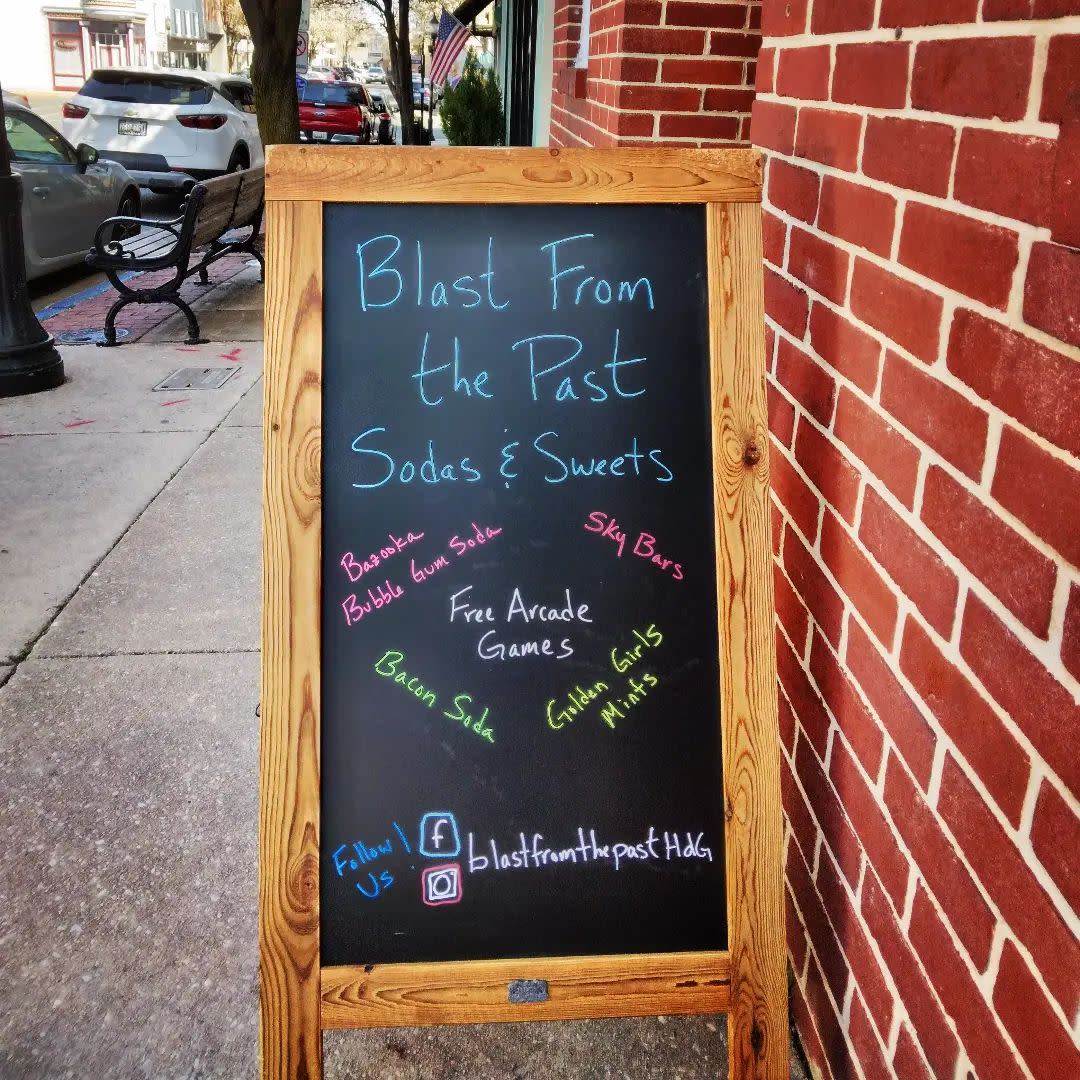 Blast From
the Past
Sodas & Sweets
Bazooka
Bubble Gum Soda
Sky Bars
Free Arcade
Games
Bacon Soda
Golden Girls
Mints
Follow
Us !
f
blastfromthepastHdG